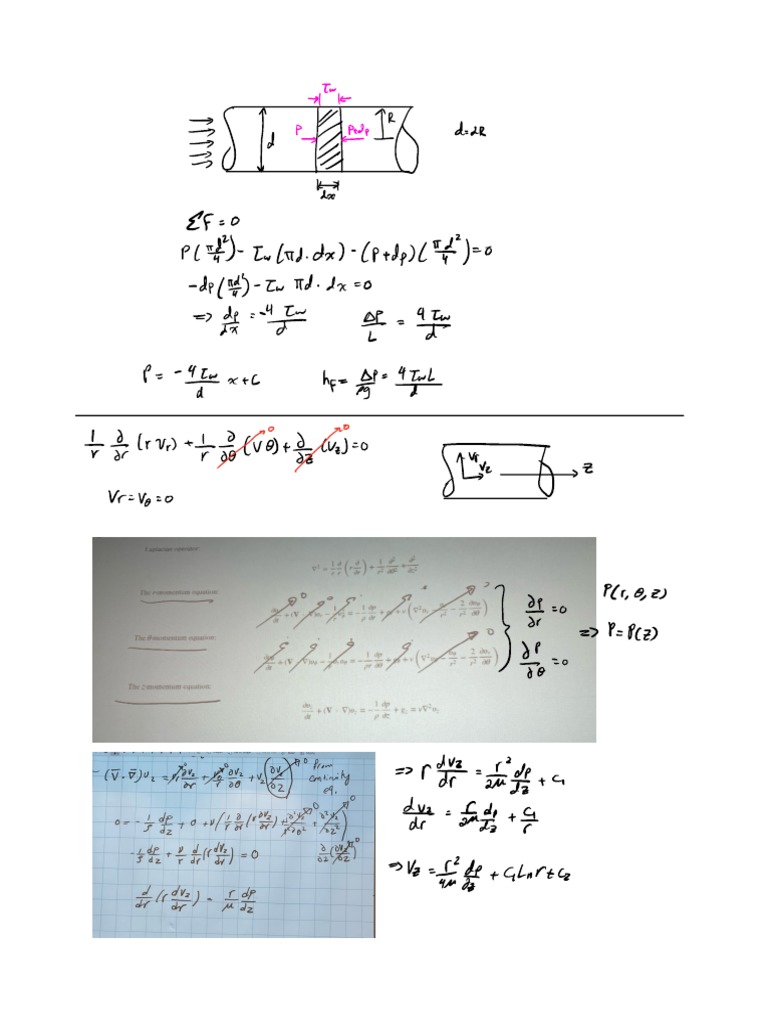 τw
P
P+dp
R
d
d=2R
dx
ΣF=0
P(πd²/4) - τw(πd·dx) - (P+dp)(πd²/4)=0
-dp(πd²/4) - τw πd·dx=0
=> dp/dx = -4τw/d    ΔP/L = 4τw/d
P = -4τw/d x+C    hF = ΔP/ρg = 4τwL/d
1/r ∂/∂r (r Vr) + 1/r ∂/∂θ (Vθ) 0 + ∂/∂z (Vz) 0 =0
Vr
Vz
Z
Vr=Vθ=0
Laplacian operator:
∇² = 1/r ∂/∂r (r ∂/∂r) + 1/r² ∂²/∂θ² + ∂²/∂z²
The r-momentum equation:
∂P/∂r =0
P(r, θ, z)
=> P=P(Z)
The θ-momentum equation:
∂P/∂θ =0
The z-momentum equation:
(V̄·∇̄)υz = Vr ∂Vz/∂r + Vθ/r ∂Vz/∂θ + Vz ∂Vz/∂Z 0 From
continuity
eq.
0 = -1/ρ dp/dz + 0 + ν(1/r ∂/∂r (r ∂Vz/∂r) + 1/r² ∂²Vz/∂θ² 0 + ∂²Vz/∂z² 0)
-1/ρ dp/dz + ν/r d/dr (r dVz/dr) = 0
∂/∂z (∂Vz/∂z) 0
d/dr (r dVz/dr) = r/μ dp/dz
=> r dVz/dr = r²/2μ dp/dz + C1
dVz/dr = r/2μ dp/dz + C1/r
=> Vz = r²/4μ dp/dz + C1 Ln r + C2